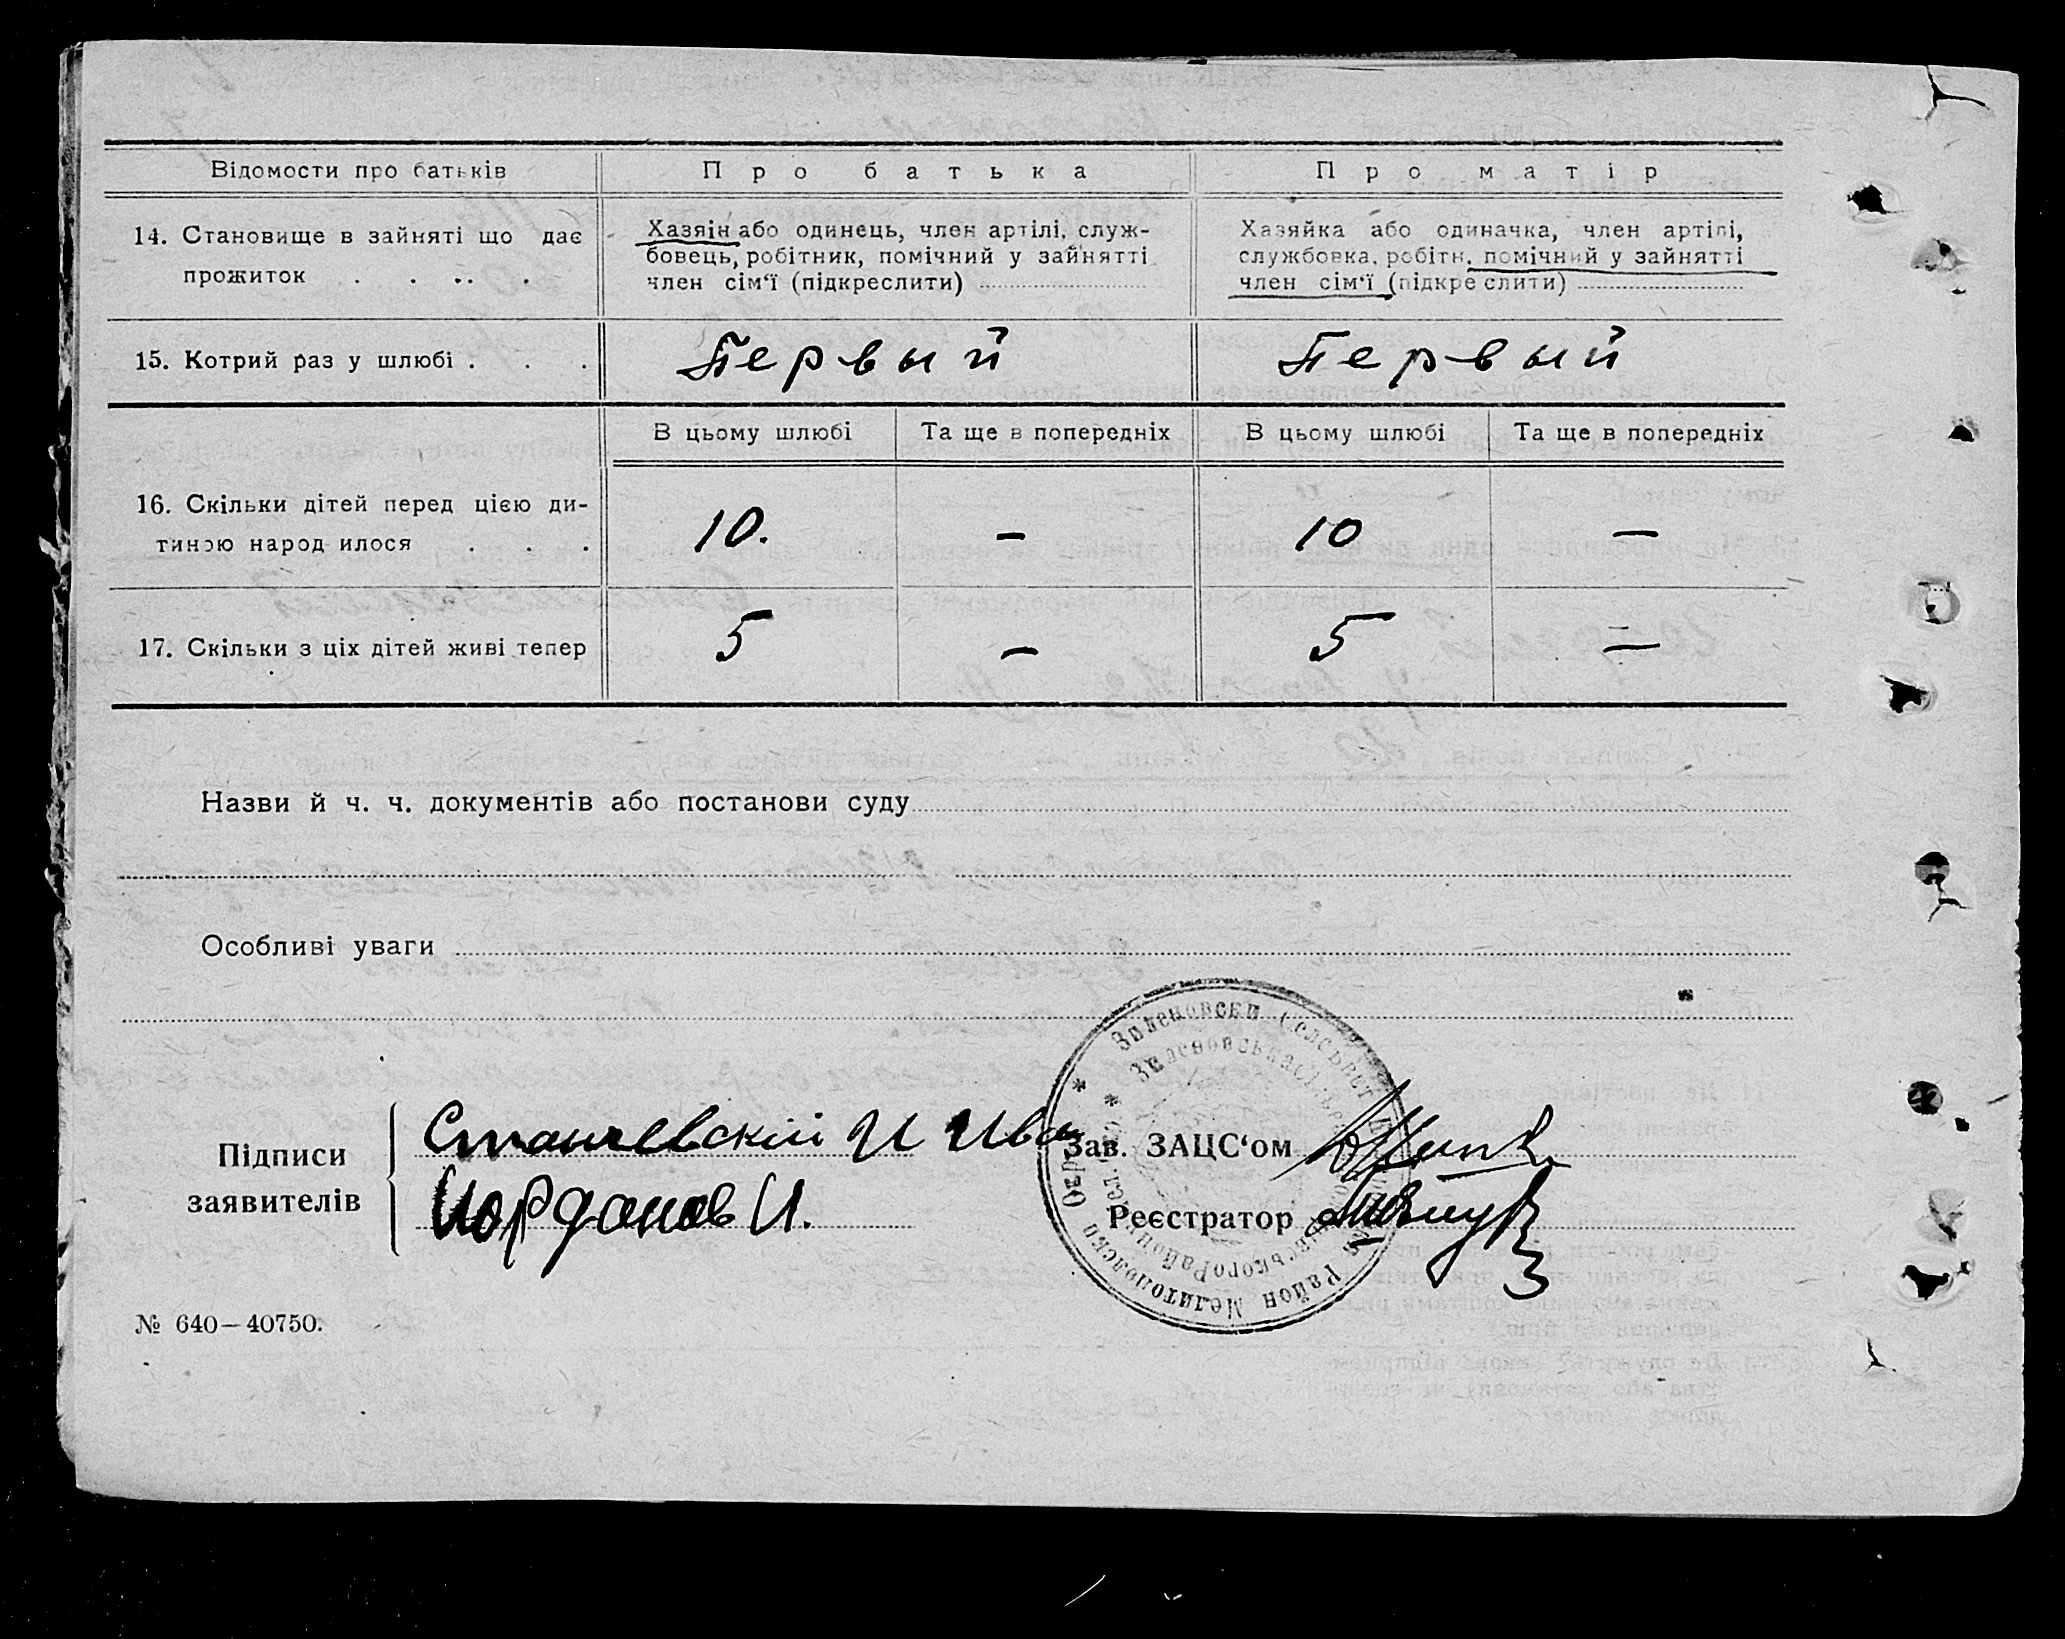 Відомости про батьків
Про батька
Про матір
14. Становище в зайняті що дає
прожиток . . .. .
Хазяін або одинець, член артілі, служ-
бовець, робітник, помічний у зайнятті
член сім‘ї (підкреслити)
Хазяйка або одиначка, член артілі,
службовка, робітн. помічний у зайнятті
член сім‘ї (підкреслити)
15. Котрий раз у шлюбі . . .
Первый
Первый
В цьому шлюбі
Та ще в попередніх
В цьому шлюбі
Та ще в попередніх
16. Скільки дітей перед цією ди-
тиною народилося . . .
10.
–
10
–
17. Скільки з ціх дітей живі тепер
5
–
5
–
Назви й ч. ч. документів або постанови суду
Особливі уваги
Підписи
заявителів
Станчевскій И Ива
Иорданов И.
Зав. ЗАЦС‘ом
Реєстратор
Район Мелитополски Окр
№ 640–40750.